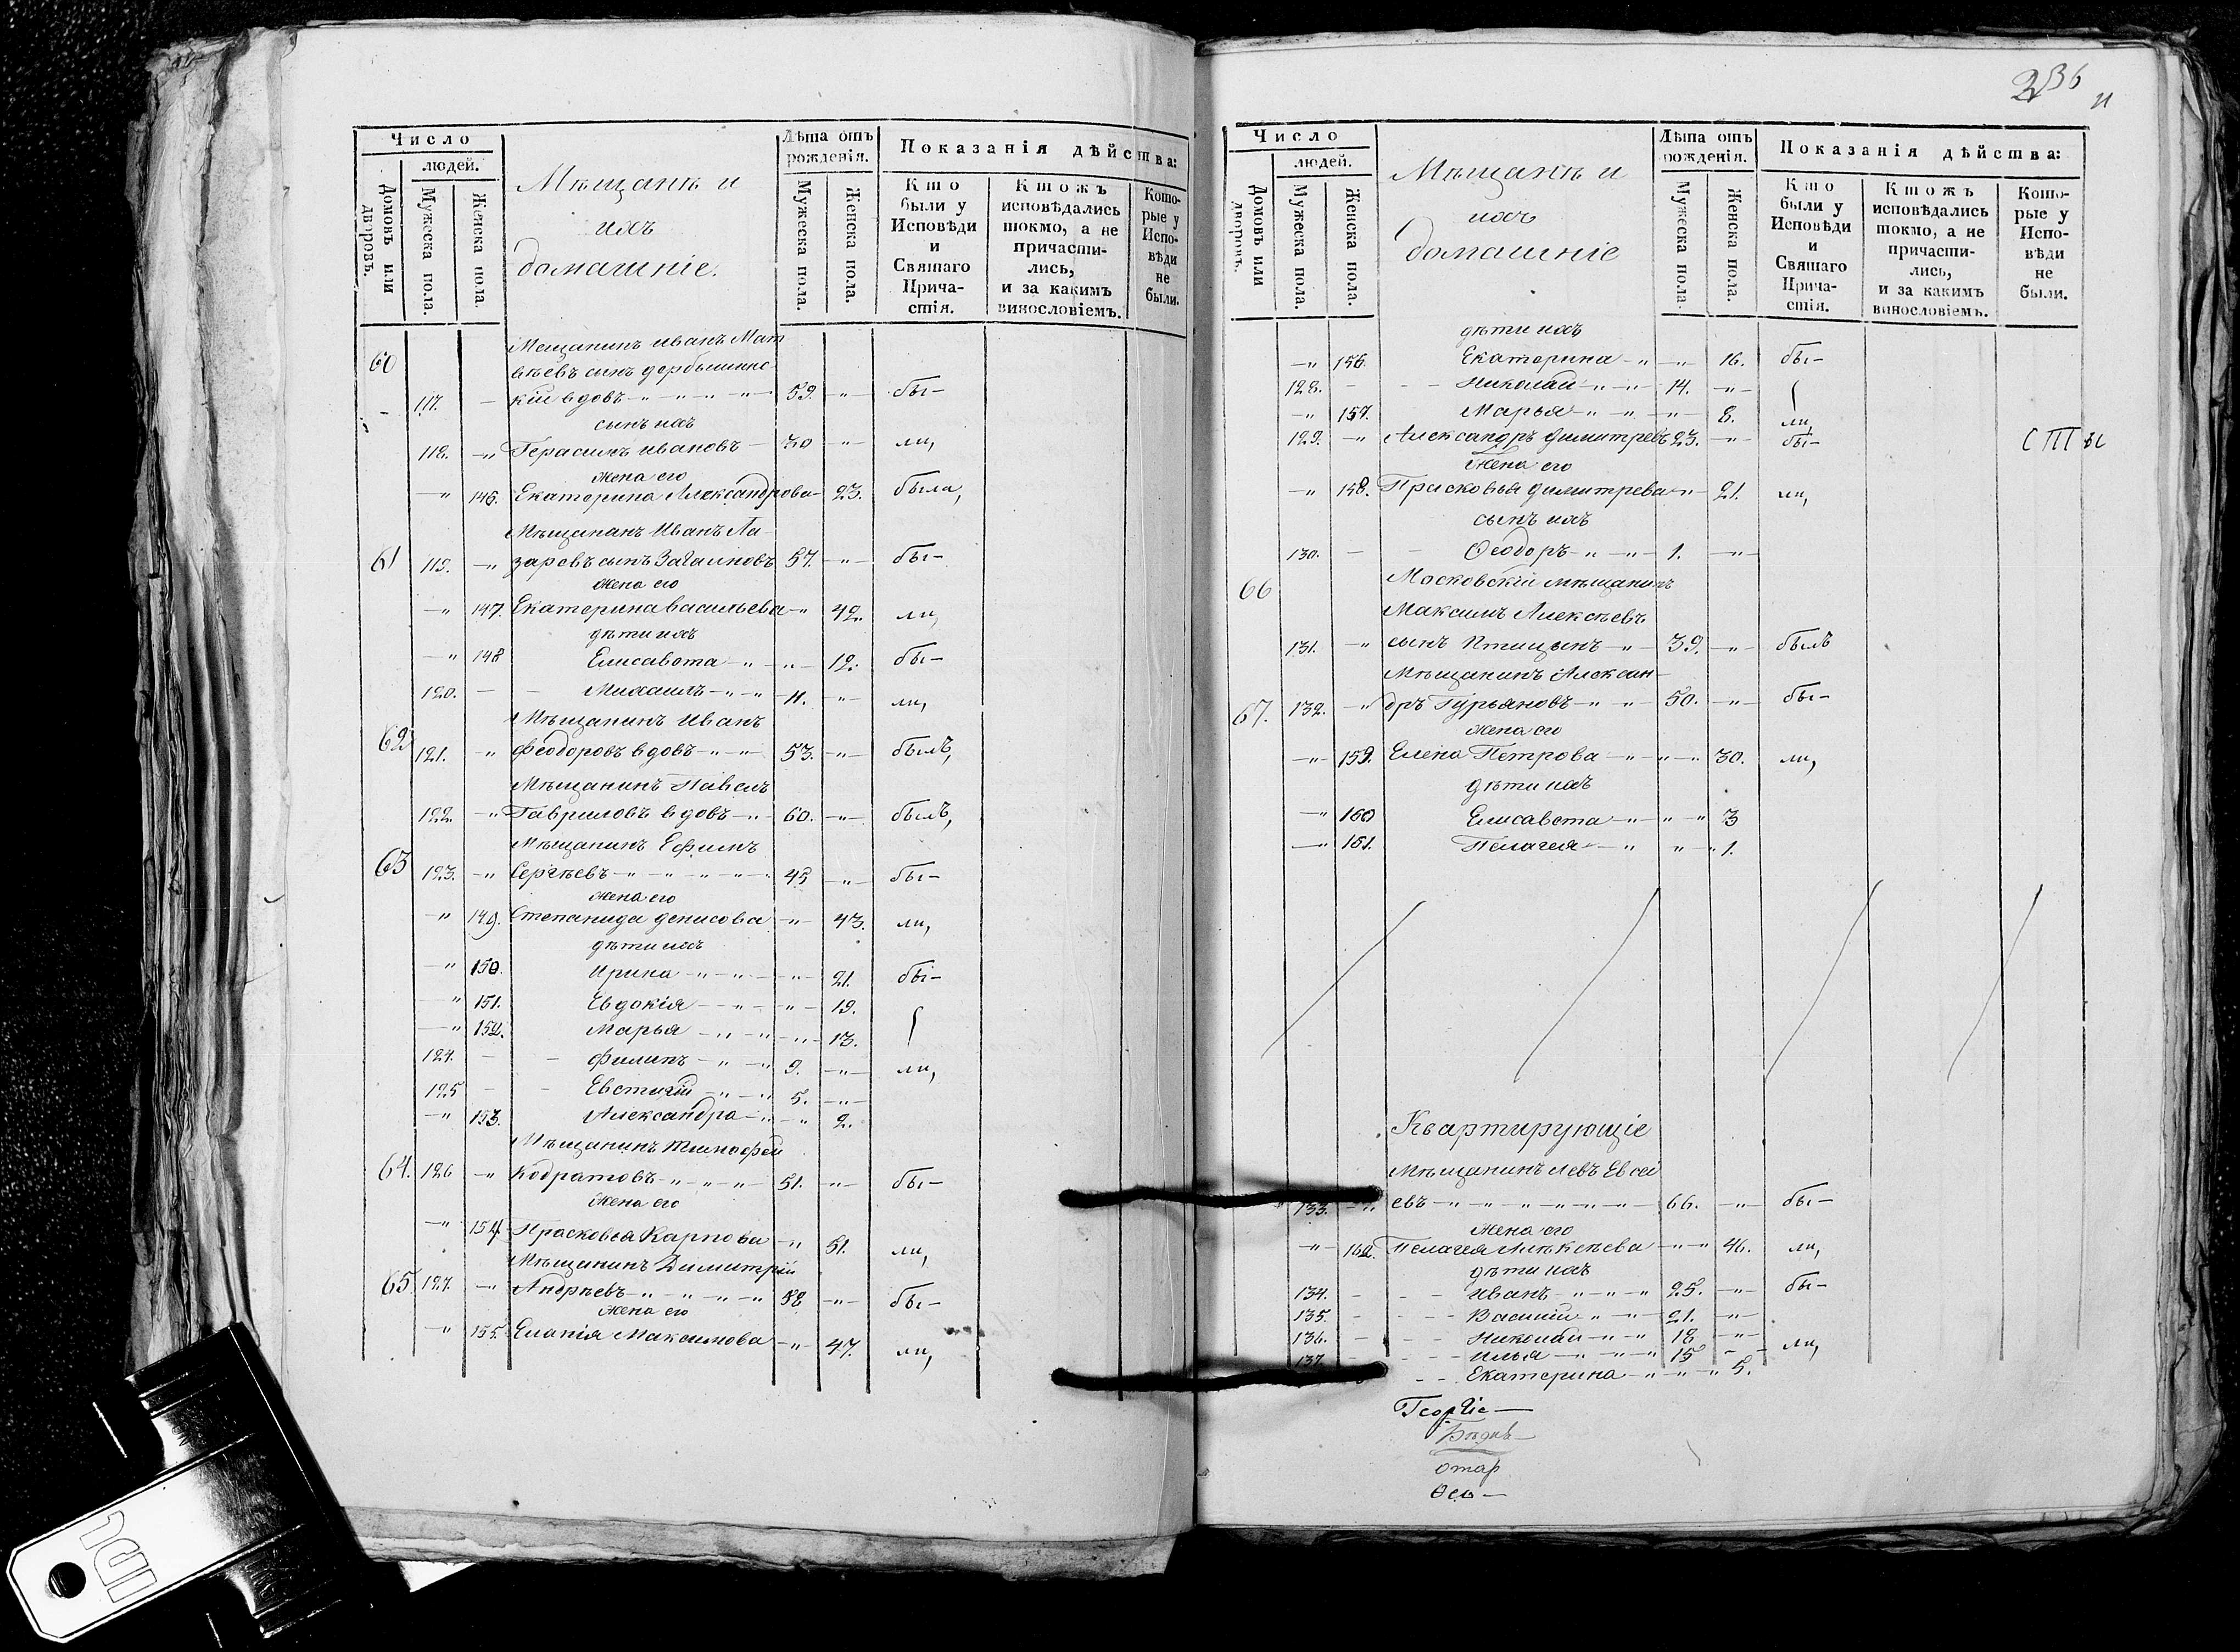 Число
людей.
Домовъ или дворовъ.
Мужеска пола.
Женска пола.
Мѣщанѣ и
ихъ
домашніе.
Лѣта отъ
рожденія.
Мужеска пола.
Женска пола.
Показанія дѣйства:
Кто
были у
Исповѣди
и
Святаго
Прича-
стія.
Ктожъ
исповѣдались
токмо, а не
причасти-
лись,
и за какимъ
винословіемъ.
Кото-
рые у
Испо-
вѣди
не
были.
60 Мещанинъ Иванъ Мат
вѣевъ сынъ
117. — кій вдовъ 59. бы-
сынъ ихъ
118. Герасимъ Ивановъ 30 ли,
жена его
146. Екатерина Александрова 23. была,
Мѣщанинъ Иванъ Ла-
61 119. заревъ сынъ Загаиновъ 57. бы-
жена его
147. Екатерина Васильева 42. ли,
дѣти ихъ
148 Елисавета 12. бы-
120. Михаилъ 11. ли,
Мѣщанинъ Иванъ
62 121. Феодоровъ вдовъ 53. былъ,
Мѣщанинъ Павелъ
122. Гавриловъ вдовъ 60. былъ,
Мѣщанинъ Ефимъ
63 123. Сергѣевъ 45 бы-
жена его
149. Степанида Денисова 43. ли,
дѣти ихъ
150. Ирина 21. бы-
151. Евдокія 19.
152. Марья 13.
124. Филипъ 9. ли,
125 5.
153. Александра 2.
Мѣщанинъ Тимофей
64. 126 Кодратовъ 51. бы-
жена его
154 Прасковья Карпова 51. ли,
Мѣщанинъ Димитрій
65 127. Андрѣевъ 58 бы-
жена его
155. Максимова 47. ли,
236
Число
людей.
Домовъ или дворовъ.
Мужеска пола.
Женска пола.
Мѣщанѣ и
ихъ
домашніе
Лѣта отъ
рожденія.
Мужеска пола.
Женска пола.
Показанія дѣйства:
Кто
были у
Исповѣди
и
Святаго
Прича-
стія.
Ктожъ
исповѣдались
токмо, а не
причасти-
лись,
и за какимъ
винословіемъ.
Кото-
рые у
Испо-
вѣди
не
были.
дѣти ихъ
156. Екатерина 16. бы-
128. Николай 14.
157. Марья 8. ли,
129. Александръ Димитревъ 23. бы-
жена его
158. Прасковья Димитрева 21. ли,
сынъ ихъ
130. Ѳеодоръ 1.
66 Московскій мѣщанинъ
Максимъ Алексѣевъ
131. сынъ Птицынъ 39. былъ
Мѣщанинъ Алексан-
67. 132. дръ Гурьяновъ 50. бы-
жена его
159. Елена Петрова 30. ли,
дѣти ихъ
160 Елисавета 3
161. Пелагея 1.
Квартирующіе
Мѣщанинъ Левъ Евсѣ
133. евъ 66. бы-
жена его
162. Пелагея Алѣксѣева 46. ли,
дѣти ихъ
134. Иванъ 25. бы-
135. Василій 21.
136. Николай 18
137. Илья 15 ли,
Екатерина 5.
Георгіе—